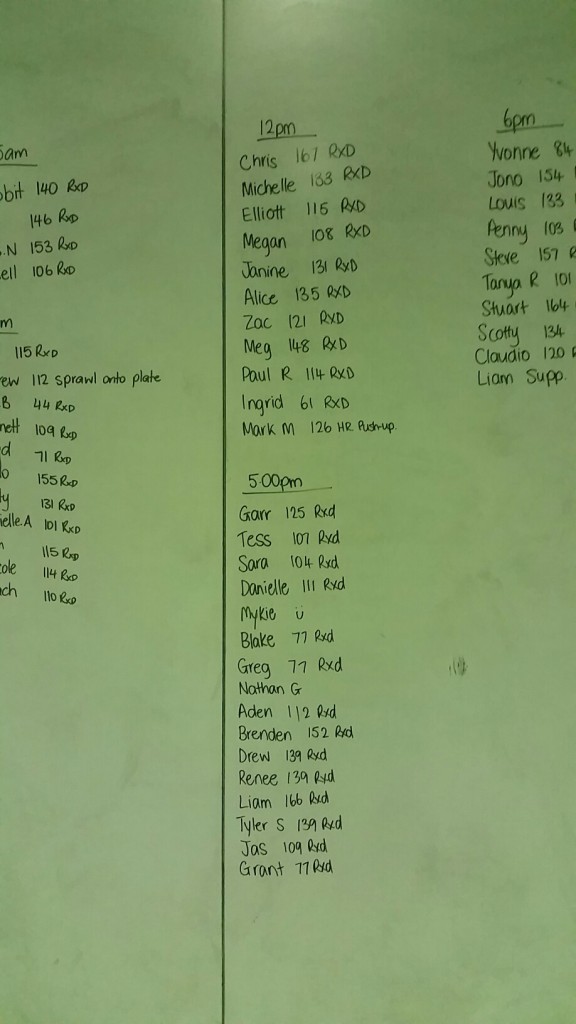 5am
bbit 140 RxD
146 RxD
.N 153 RxD
ell 106 RxD
m
115 RxD
ew 112 sprawl onto plate
B 44 RxD
nett 109 RxD
d 71 RxD
o 155 RxD
ty 131 RxD
ielle.A 101 RxD
115 RxD
cole 114 RxD
ch 110 RxD
12pm
Chris 167 RxD
Michelle 133 RxD
Elliott 115 RxD
Megan 108 RxD
Janine 131 RxD
Alice 135 RxD
Zac 121 RxD
Meg 148 RxD
Paul R 114 RxD
Ingrid 61 RxD
Mark M 126 HR Push-up.
5:00pm
Garr 125 Rxd
Tess 107 Rxd
Sara 104 Rxd
Danielle 111 Rxd
Mykie ü
Blake 77 Rxd
Greg 77 Rxd
Nathan G
Aden 112 Rxd
Brenden 152 Rxd
Drew 139 Rxd
Renee 139 Rxd
Liam 166 Rxd
Tyler S 139 Rxd
Jas 109 Rxd
Grant 77 Rxd
6pm
Yvonne 84
Jono 154
Louis 133
Penny 103
Steve 157 R
Tanya R 101
Stuart 164
Scotty 134
Claudio 120
Liam Supp.